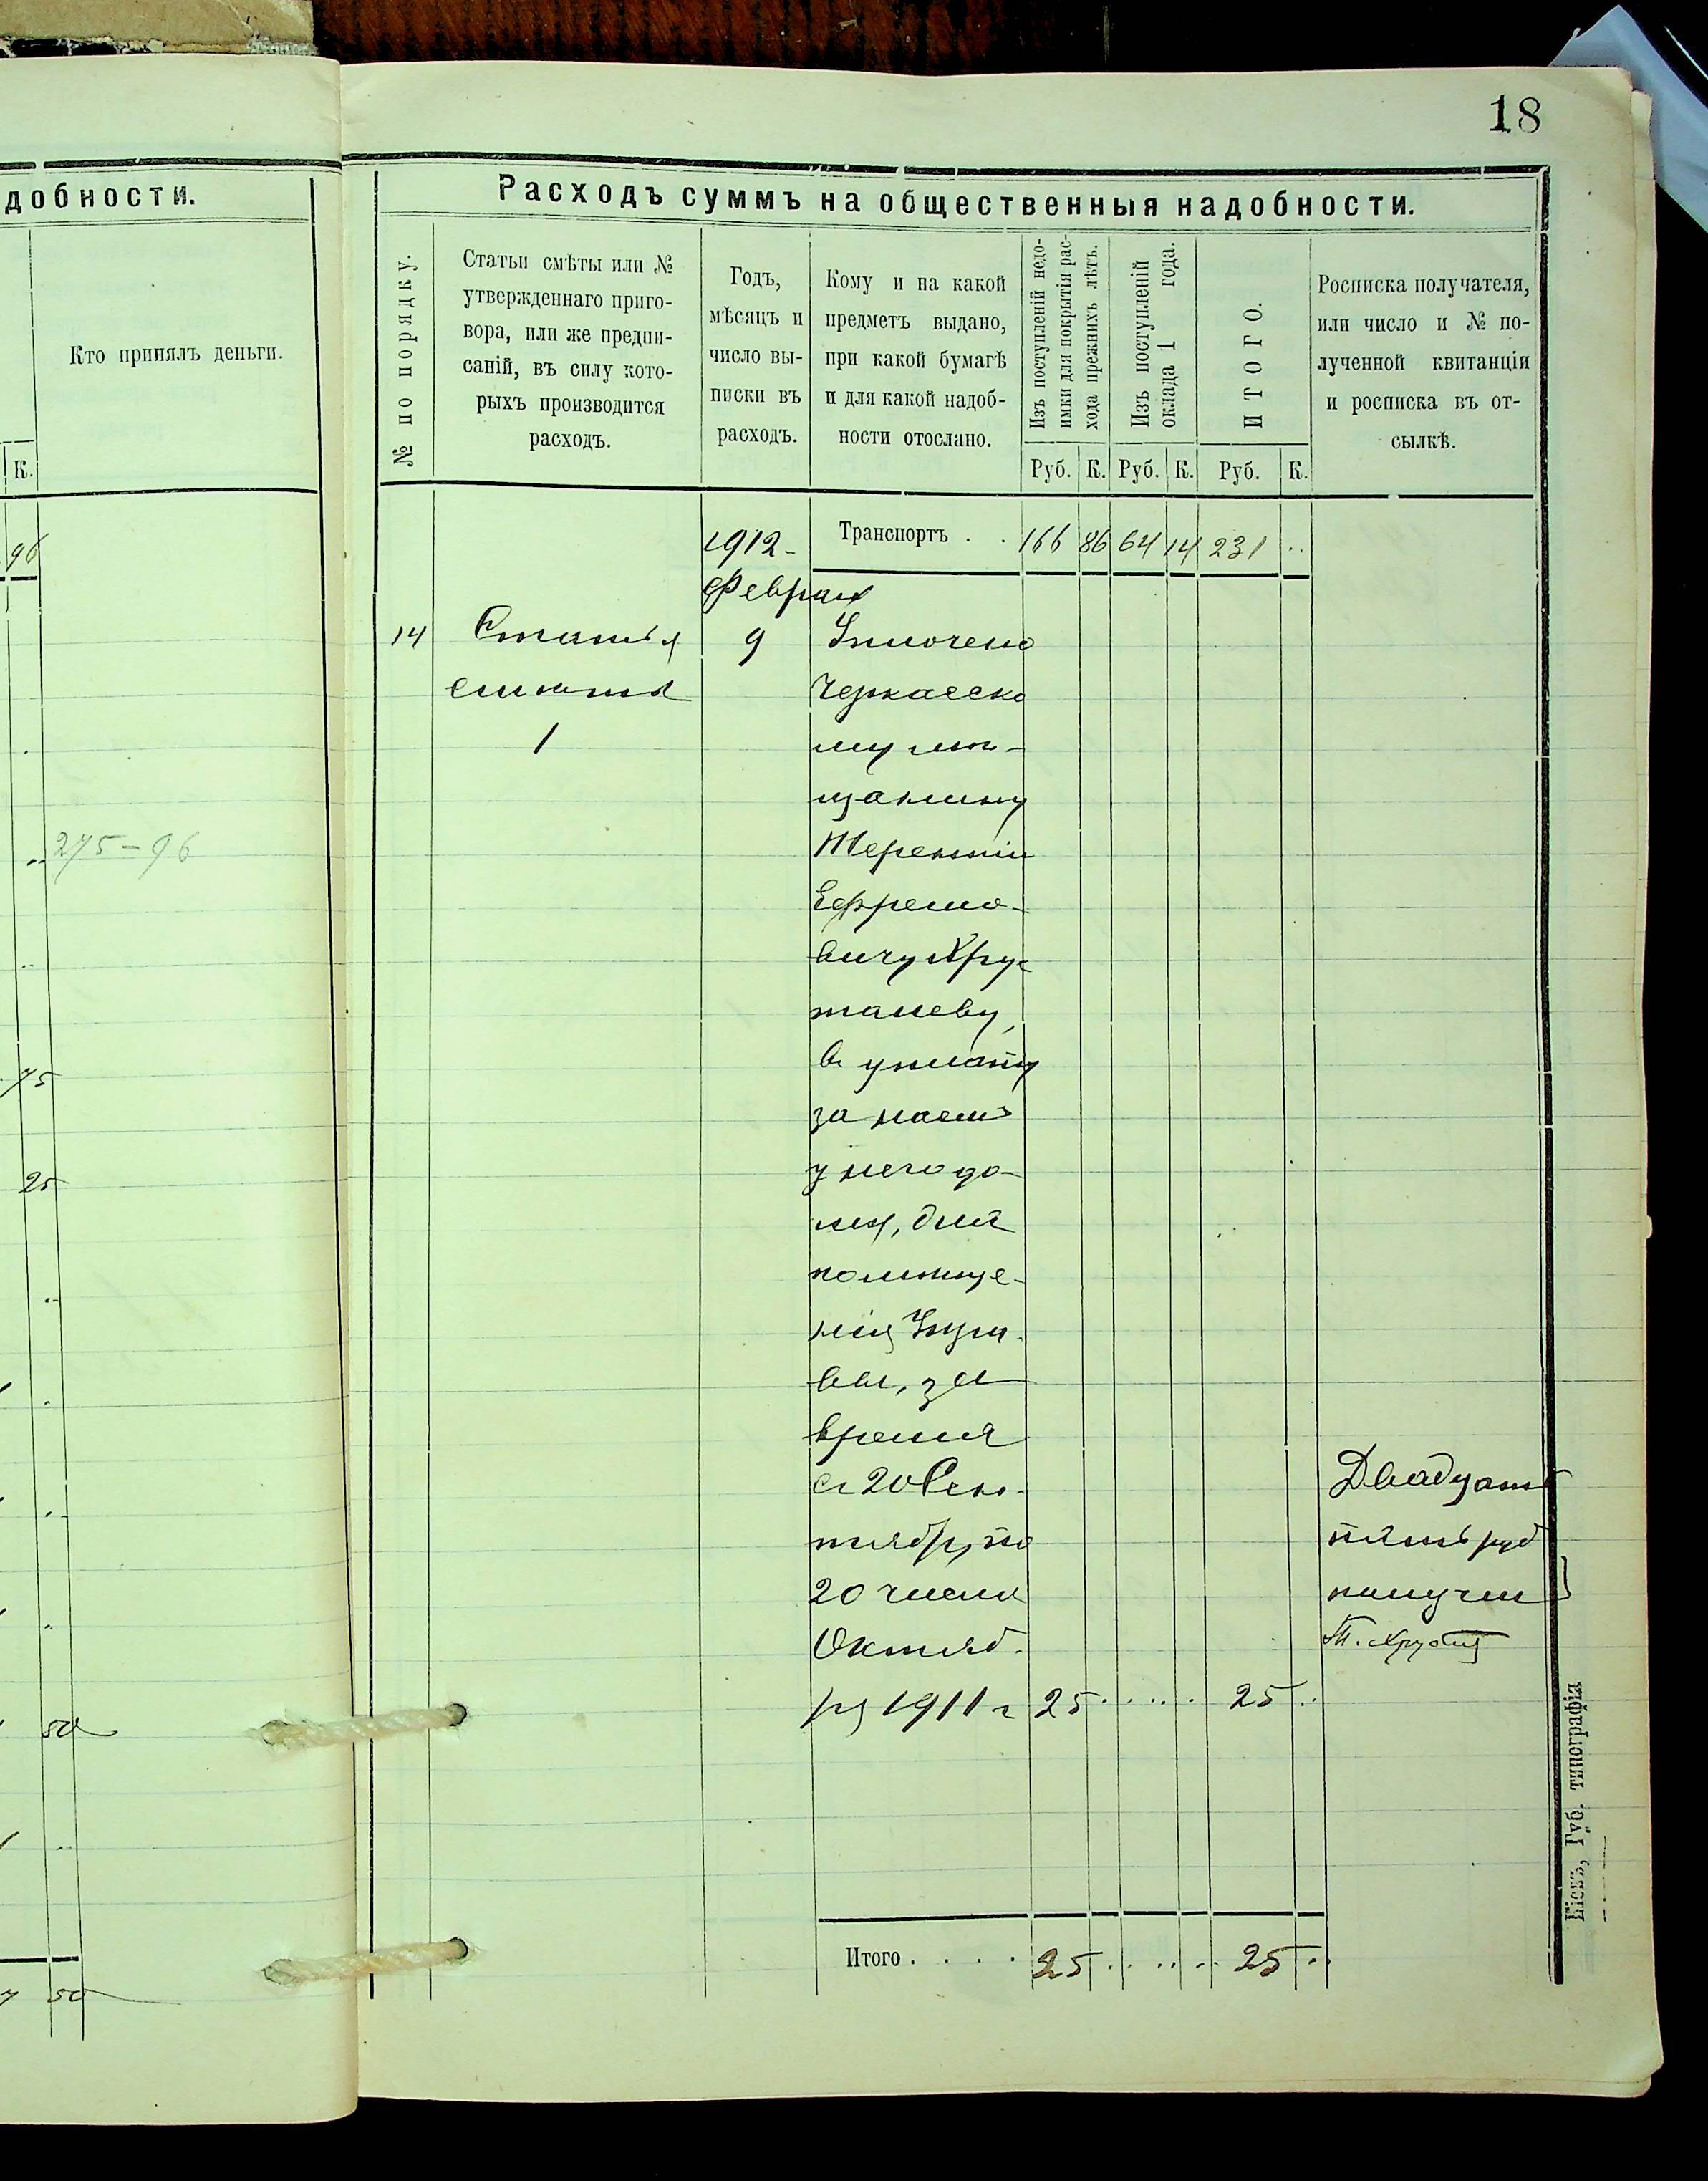 18
добности.
Кто принялъ деньги.
К.
96
275-96
75
25
50
50
Расходъ суммъ на общественныя надобности.
№ по порядку.
Статьи смѣты или №
утвержденнаго приго-
вора, или же предпи-
саній, въ силу кото-
рыхъ производится
расходъ.
Годъ,
мѣсяцъ и
число вы-
писки въ
расходъ.
Кому и на какой
предметъ выдано,
при какой бумагѣ
и для какой надоб-
ности отослано.
Изъ поступленій недо-
имки для покрытія рас-
хода прежнихъ лѣтъ.
Изъ поступленій
оклада 1 года.
ИТОГО.
Росписка получателя,
или число и № по-
лученной квитанціи
и росписка въ от-
сылкѣ.
Руб. К. Руб. К. Руб. К.
1912- Транспортъ . . 166 86 64 14 231 ..
Февраля
14 Статья 9 Уплочено
смѣты Черкасско
1 му мѣ-
щанину
Терентію
Ефремо-
вичу Хру
талеву,
въ уплату
за наемъ
у него до-
ма, для
помѣще-
нія Упра-
вы, за
время
съ 20 Сен- Двадцать
тября, по пять руб
20 число получил
Октяб- Т. Хру
ря 1911 г 25 . . . . . 25 ..
Итого . . . . 25 . . . . . 25 ..
Кіевъ, Губ. типографія